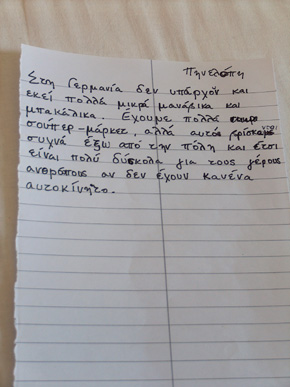 Πηνελόπη
Στη Γερμανία δεν υπάρχον και
εκεί πολλά μικρά μανάβικα και
μπακάλικα. Έχουμε πολλά
σούπερ-μάρκετ, αλλά αυτά βρίσκονται
συχνά έξω από την πόλη και έτσι
είναι πολύ δύσκολα για τους γέρους
ανθρόπους αν δεν έχουν κανένα
αυτοκίνητο.